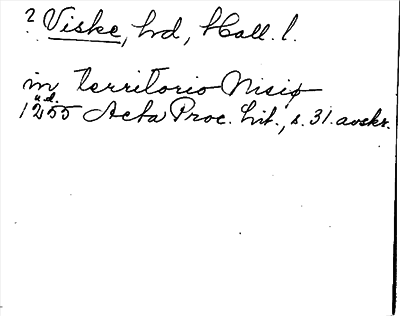 ? Viske, hd, Hall. l.
in territorio Nisiø
u.d.
1255 Acta Proc. Lit., s. 31. avskr.